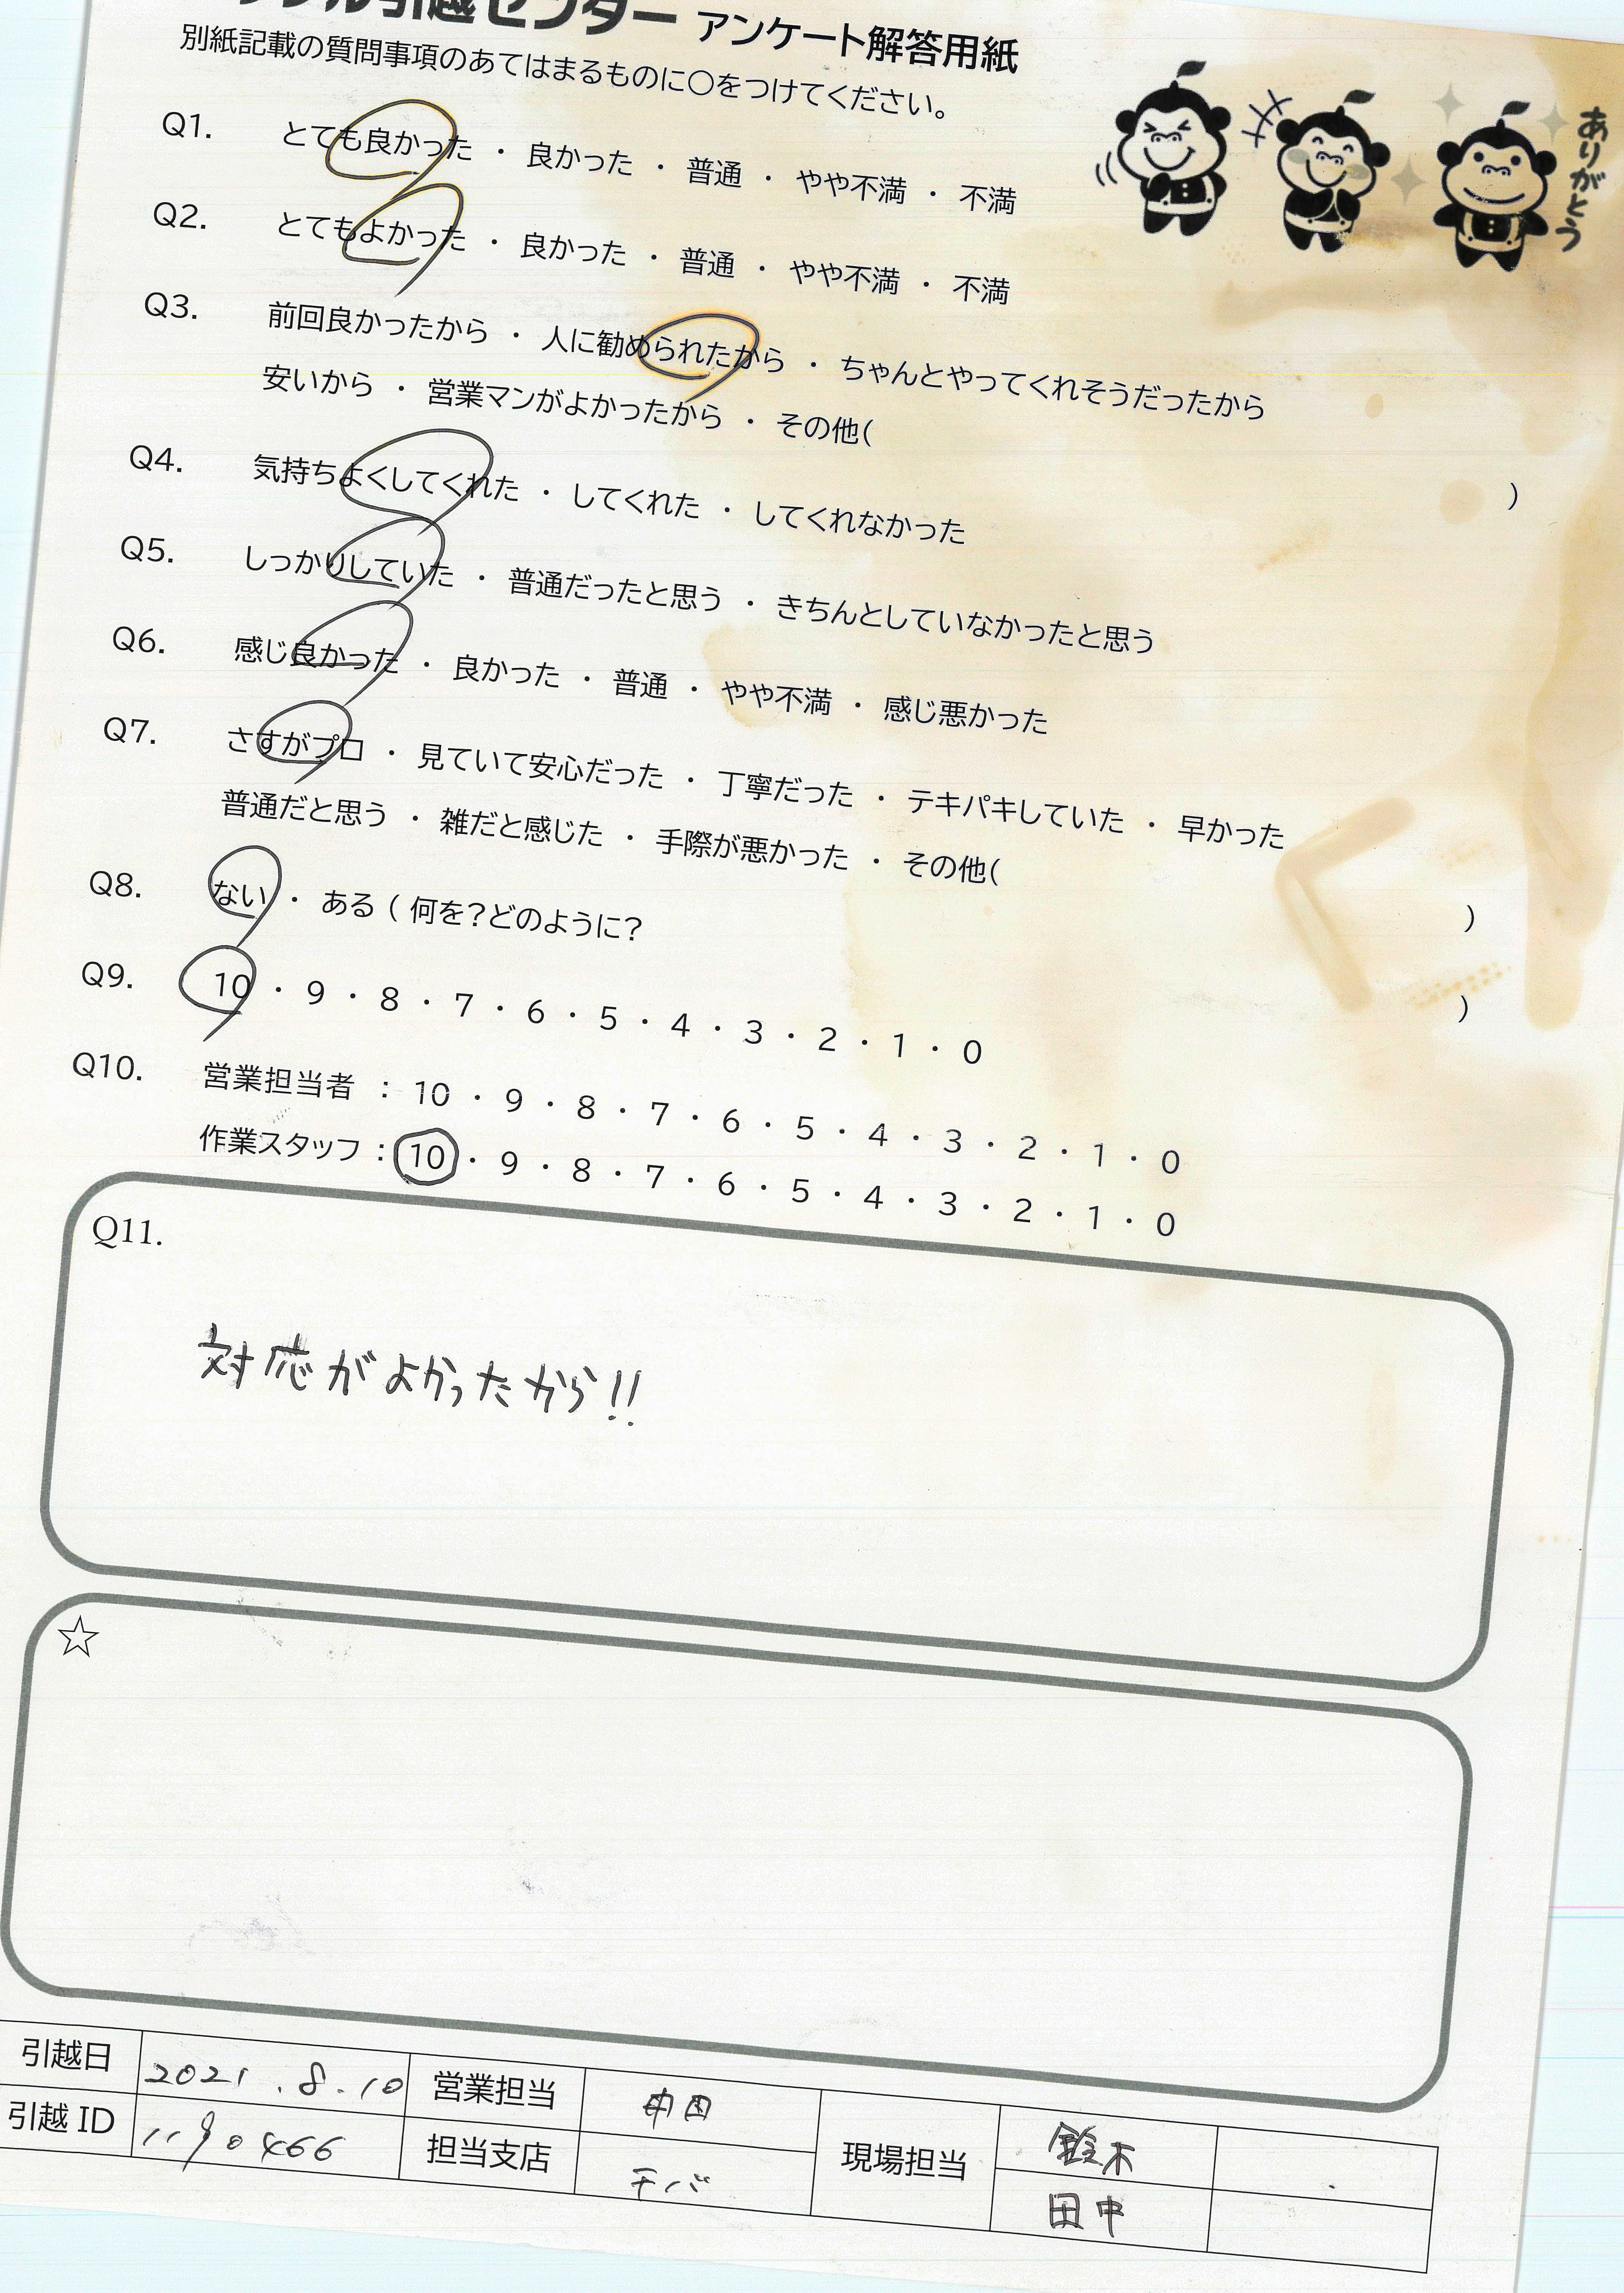 引越センター アンケート解答用紙
別紙記載の質問事項のあてはまるものに○をつけてください。
ありがとう
Q1. とても良かった ・ 良かった ・ 普通 ・ やや不満 ・ 不満
Q2. とてもよかった ・ 良かった ・ 普通 ・ やや不満 ・ 不満
Q3. 前回良かったから ・ 人に勧められたから ・ ちゃんとやってくれそうだったから
安いから ・ 営業マンがよかったから ・ その他( )
Q4. 気持ちよくしてくれた ・ してくれた ・ してくれなかった
Q5. しっかりしていた ・ 普通だったと思う ・ きちんとしていなかったと思う
Q6. 感じ良かった ・ 良かった ・ 普通 ・ やや不満 ・ 感じ悪かった
Q7. さすがプロ ・ 見ていて安心だった ・ 丁寧だった ・ テキパキしていた ・ 早かった
普通だと思う ・ 雑だと感じた ・ 手際が悪かった ・ その他( )
Q8. ない ・ ある ( 何を?どのように? )
Q9. 10 ・ 9 ・ 8 ・ 7 ・ 6 ・ 5 ・ 4 ・ 3 ・ 2 ・ 1 ・ 0
Q10. 営業担当者 : 10 ・ 9 ・ 8 ・ 7 ・ 6 ・ 5 ・ 4 ・ 3 ・ 2 ・ 1 ・ 0
作業スタッフ : 10 ・ 9 ・ 8 ・ 7 ・ 6 ・ 5 ・ 4 ・ 3 ・ 2 ・ 1 ・ 0
Q11.
対応がよかったから!!
☆
引越日 2021.8.10 営業担当
引越ID 担当支店 チバ 現場担当 鈴木
田中